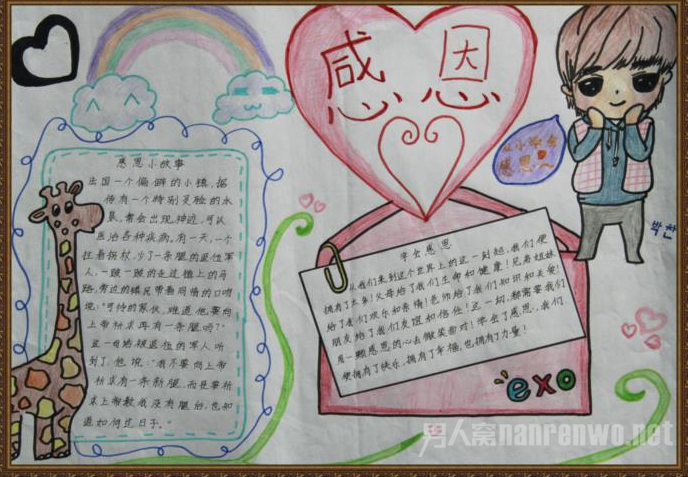 感恩
感恩小故事
法国一个偏僻的小镇，据
传有一个特别灵验的水
泉，常会出现神迹，可以
医治各种疾病。有一天，一个
拄着拐杖，少了一条腿的退伍军
人，一跛一跛的走过镇上的马
路，旁边的镇民带着同情的口吻
说："可怜的家伙，难道他要向
上帝祈求再有一条腿吗？"
这一句话被退伍的军人听
到了，他说："我不要向上帝
祈求有一条新腿，而是要祈
求上帝教我没有腿后，也知
道如何过日子。"
学会感恩
从我们来到这个世界上的这一刻起，我们便
拥有了太多！父母给了我们生命和健康！兄弟姐妹
给了我们欢乐和亲情！老师给了我们知识和关爱！
朋友给了我们友谊和信任！这一切，都需要我们
用一颗感恩的心去微笑面对！学会了感恩，我们
便拥有了快乐，拥有了幸福，也拥有了力量！
从小学会
感恩
exo
男人窝nanrenwo.net